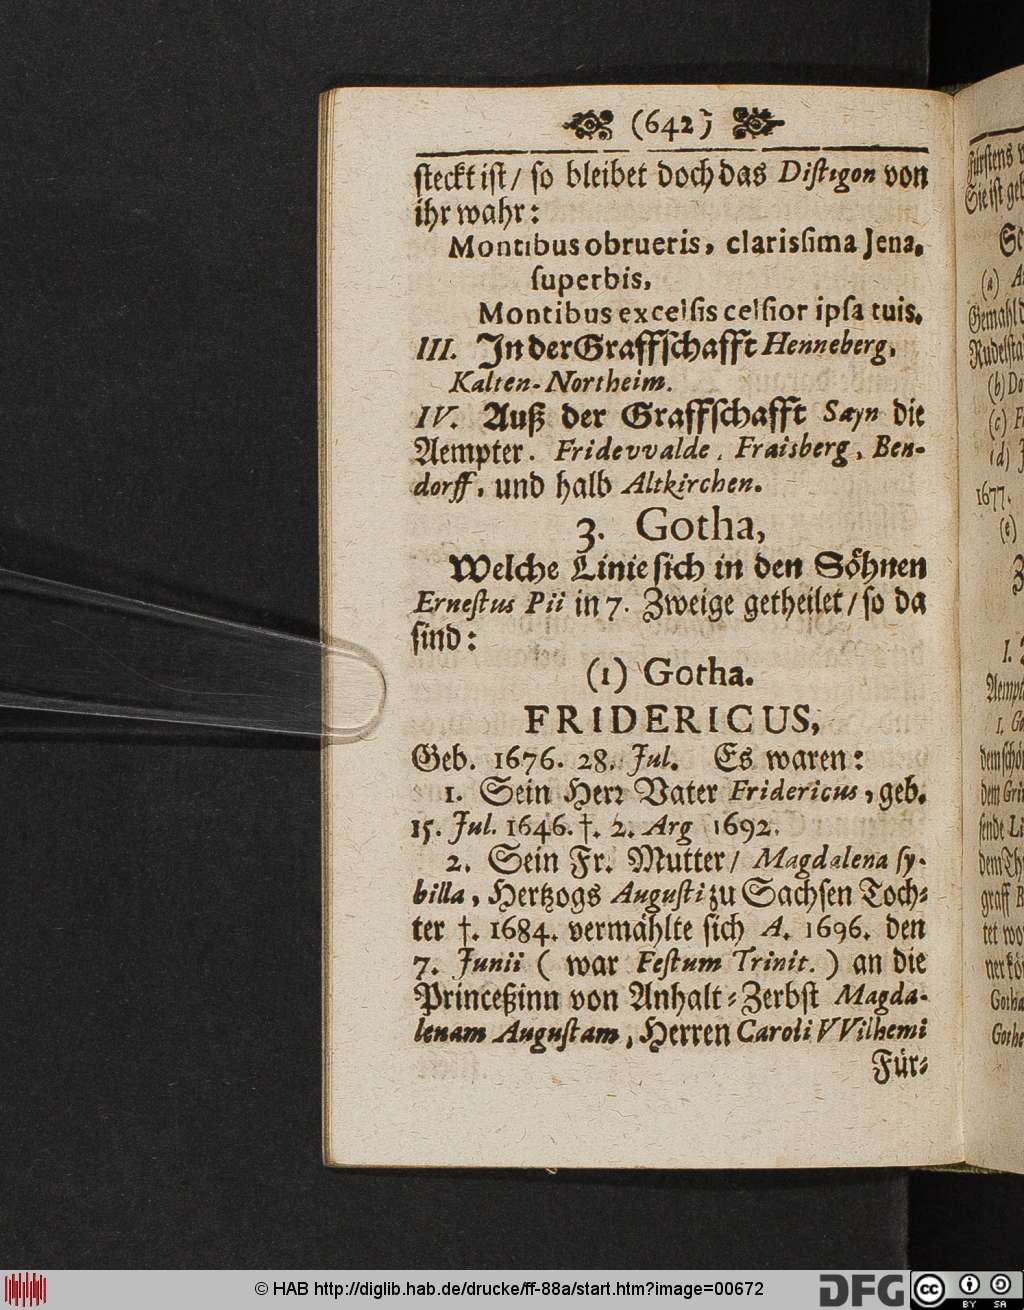 (642)
steckt ist / so bleibet doch das Distigon von
ihr wahr:
Montibus obrueris, clarissima Jena,
superbis,
Montibus excelsis celsior ipsa tuis.
III. In der Graffschafft Henneberg,
Kalten-Northeim.
IV. Auß der Graffschafft Sayn die
Aempter. Fridevvalde, Fraisberg, Ben-
dorff, und halb Altkirchen.
3. Gotha,
Welche Linie sich in den Söhnen
Ernestus Pii in 7. Zweige getheilet / so da
sind:
(1) Gotha.
FRIDERICUS,
Geb. 1676. 28. Jul. Es waren:
1. Sein Herr Vater Fridericus, geb.
15. Jul. 1646. †. 2. Arg 1692.
2. Sein Fr. Mutter / Magdalena sy-
billa, Hertzogs Augusti zu Sachsen Toch-
ter †. 1684. vermählte sich A. 1696. den
7. Junii ( war Festum Trinit. ) an die
Princeßinn von Anhalt-Zerbst Magda-
lenam Augustam, Herren Caroli VVilhemi
Für-
Fürstens
Sie ist
(a)
Gemahl
Rudelsta
(b) Do
(c)
(d)
1677.
(e)
I.
Aempt
Gotha
Gothe
© HAB http://diglib.hab.de/drucke/ff-88a/start.htm?image=00672
DFG
cc
BY SA